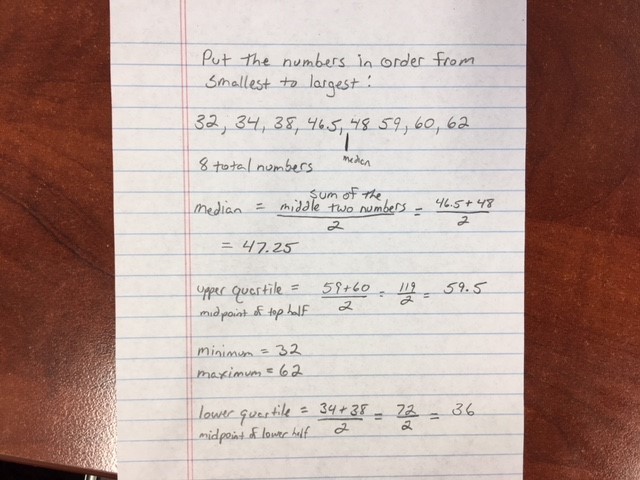 Put the numbers in order from
smallest to largest:
32, 34, 38, 46.5, 48 59, 60, 62
median
8 total numbers
median = sum of the middle two numbers / 2 = 46.5 + 48 / 2
= 47.25
upper quartile = 59+60 / 2 = 119 / 2 = 59.5
midpoint of top half
minimum = 32
maximum = 62
lower quartile = 34+38 / 2 = 72 / 2 = 36
midpoint of lower half